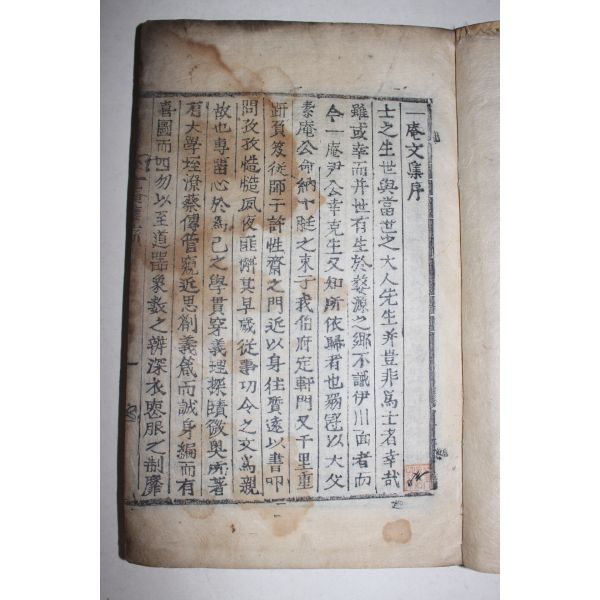 一庵文集序
士之生世與當世之大人先生并豈非爲士者幸哉
雖或幸而并世有生於婺源之鄉不識伊川面者而
今一庵尹公幸克生又知所依歸者也弱冠以大父
素庵公命納十脡之束于我伯府定軒門又千里重
趼負笈從師于許性齋之門近以身往質遠以書叩
問孜孜慥慥夙夜匪懈其早歲從事功令之文爲親
故也專留心於爲己之學貫穿義理探賾微奧所著
有大學經潦蔡傳管窺近思箚義箴而誠身編而有
喜圖而四勿以至道器象數之辨深衣喪服之制靡